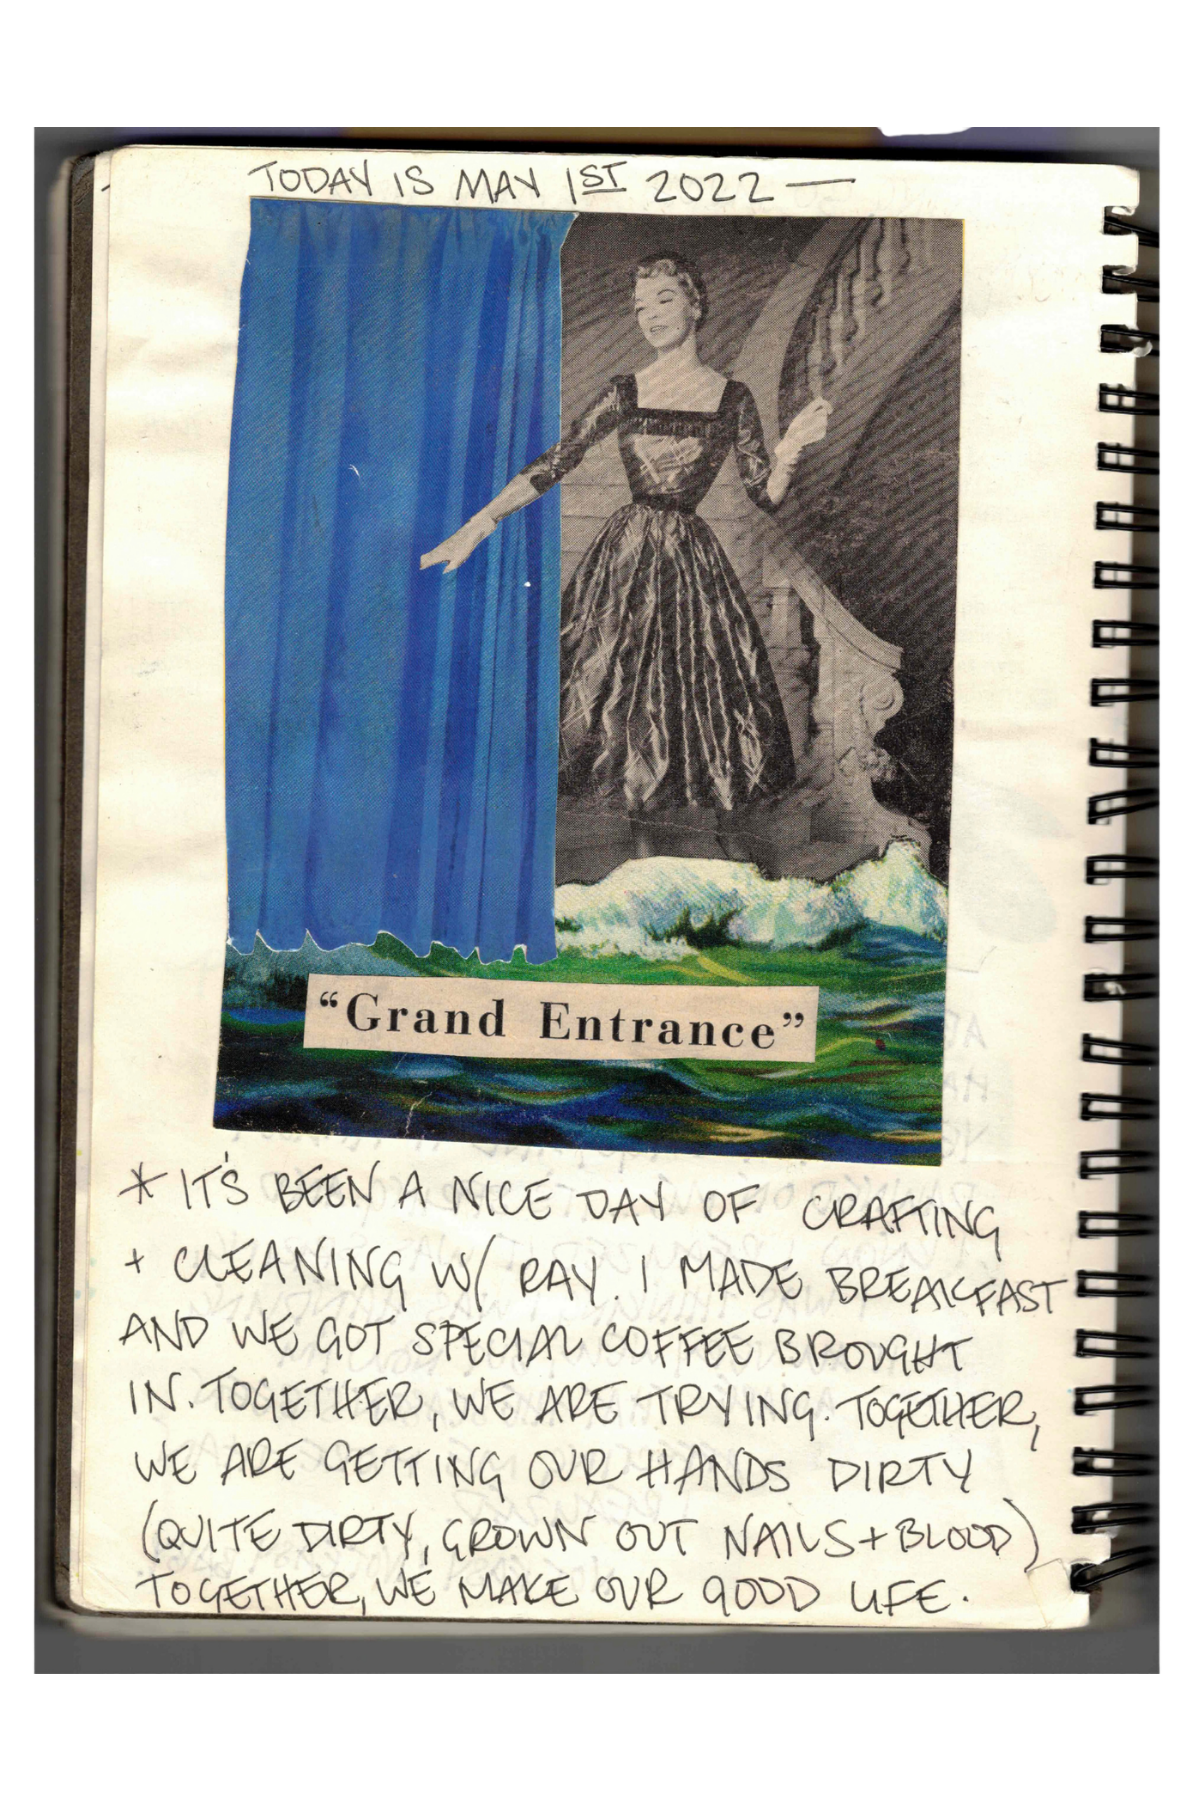 TODAY IS MAY 1ST 2022 —
"Grand Entrance"
* IT'S BEEN A NICE DAY OF CRAFTING
+ CLEANING W/ RAY. I MADE BREAKFAST
AND WE GOT SPECIAL COFFEE BROUGHT
IN. TOGETHER, WE ARE TRYING. TOGETHER,
WE ARE GETTING OUR HANDS DIRTY
(QUITE DIRTY, GROWN OUT NAILS + BLOOD)
TOGETHER, WE MAKE OUR GOOD LIFE.